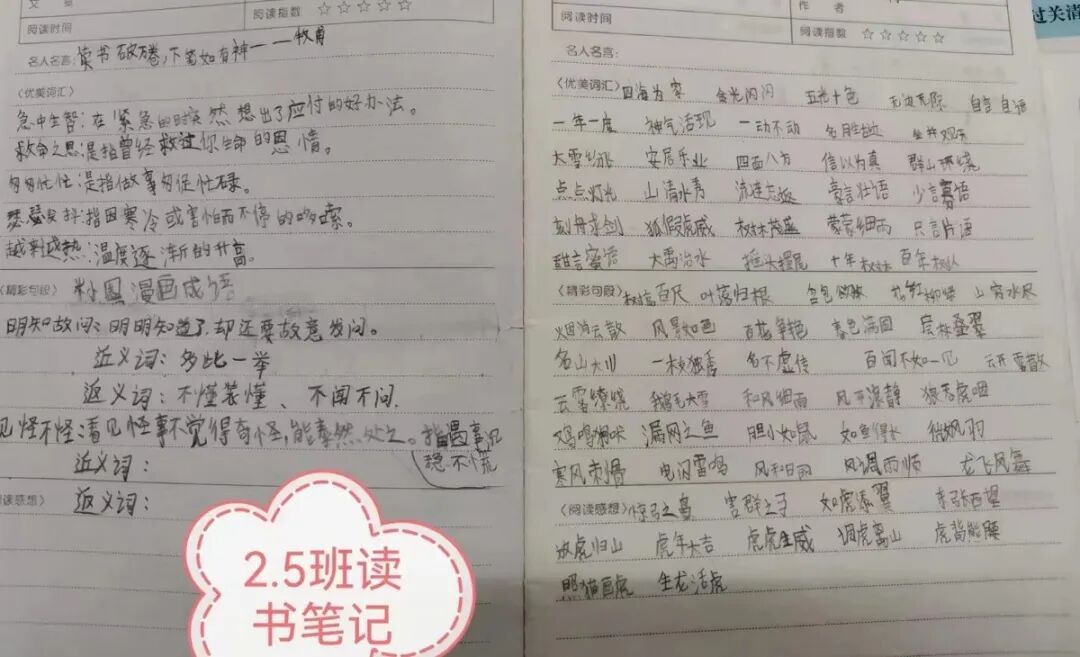 文 章
阅读指数 ☆☆☆☆☆
阅读时间
名人名言: 读书破万卷,下笔如有神——牧甫
〈优美词汇〉
急中生智:在紧急的时候突然想出了应付的好办法。
救命之恩是指曾经救过你生命的恩情。
匆匆忙忙:是指做事匆促忙碌。
瑟瑟发抖:指因寒冷或害怕而不停的哆嗦。
越来越热:温度逐渐的升高。
〈精彩句段〉 漫画成语
明知故问:明明知道了,却还要故意发问。
近义词:多此一举
返义词:不懂装懂、不闻不问.
见怪不怪:看见怪事不觉得奇怪,能泰然处之。指遇事沉
稳不慌
近义词:
阅读感想〉 返义词:
2.5班读
书笔记
作 者
阅读时间
阅读指数 ☆☆☆☆☆
名人名言:
〈优美词汇〉四海为家 金光闪闪 五光十色 无边无际 自言自语
一年一度 神气活现 一动不动 名胜古迹 坐井观天
大雪纷飞 安居乐业 四面八方 信以为真 群山环绕
点点灯光 山清水秀 流连忘返 豪言壮语 少言寡语
刻舟求剑 狐假虎威 树木茂盛 蒙蒙细雨 只言片语
甜言蜜语 大禹治水 摇头摆尾 十年树木 百年树人
〈精彩句段〉树高百尺 叶落归根 花红柳绿 山穷水尽
烟消云散 风景如画 百花争艳 春色满园 层林叠翠
名山大川 一枝独秀 名不虚传 百闻不如一见 云开雾散
云雾缭绕 鹅毛大雪 和风细雨 风平浪静 狼吞虎咽
鸡鸣狗吠 漏网之鱼 胆小如鼠 如鱼得水
寒风刺骨 电闪雷鸣 风和日丽 风调雨顺 龙飞凤舞
〈阅读感想〉惊弓之鸟 害群之马 如虎添翼 东张西望
放虎归山 虎年大吉 虎虎生威 调虎离山 虎背熊腰
照猫画虎 生龙活虎
过关清